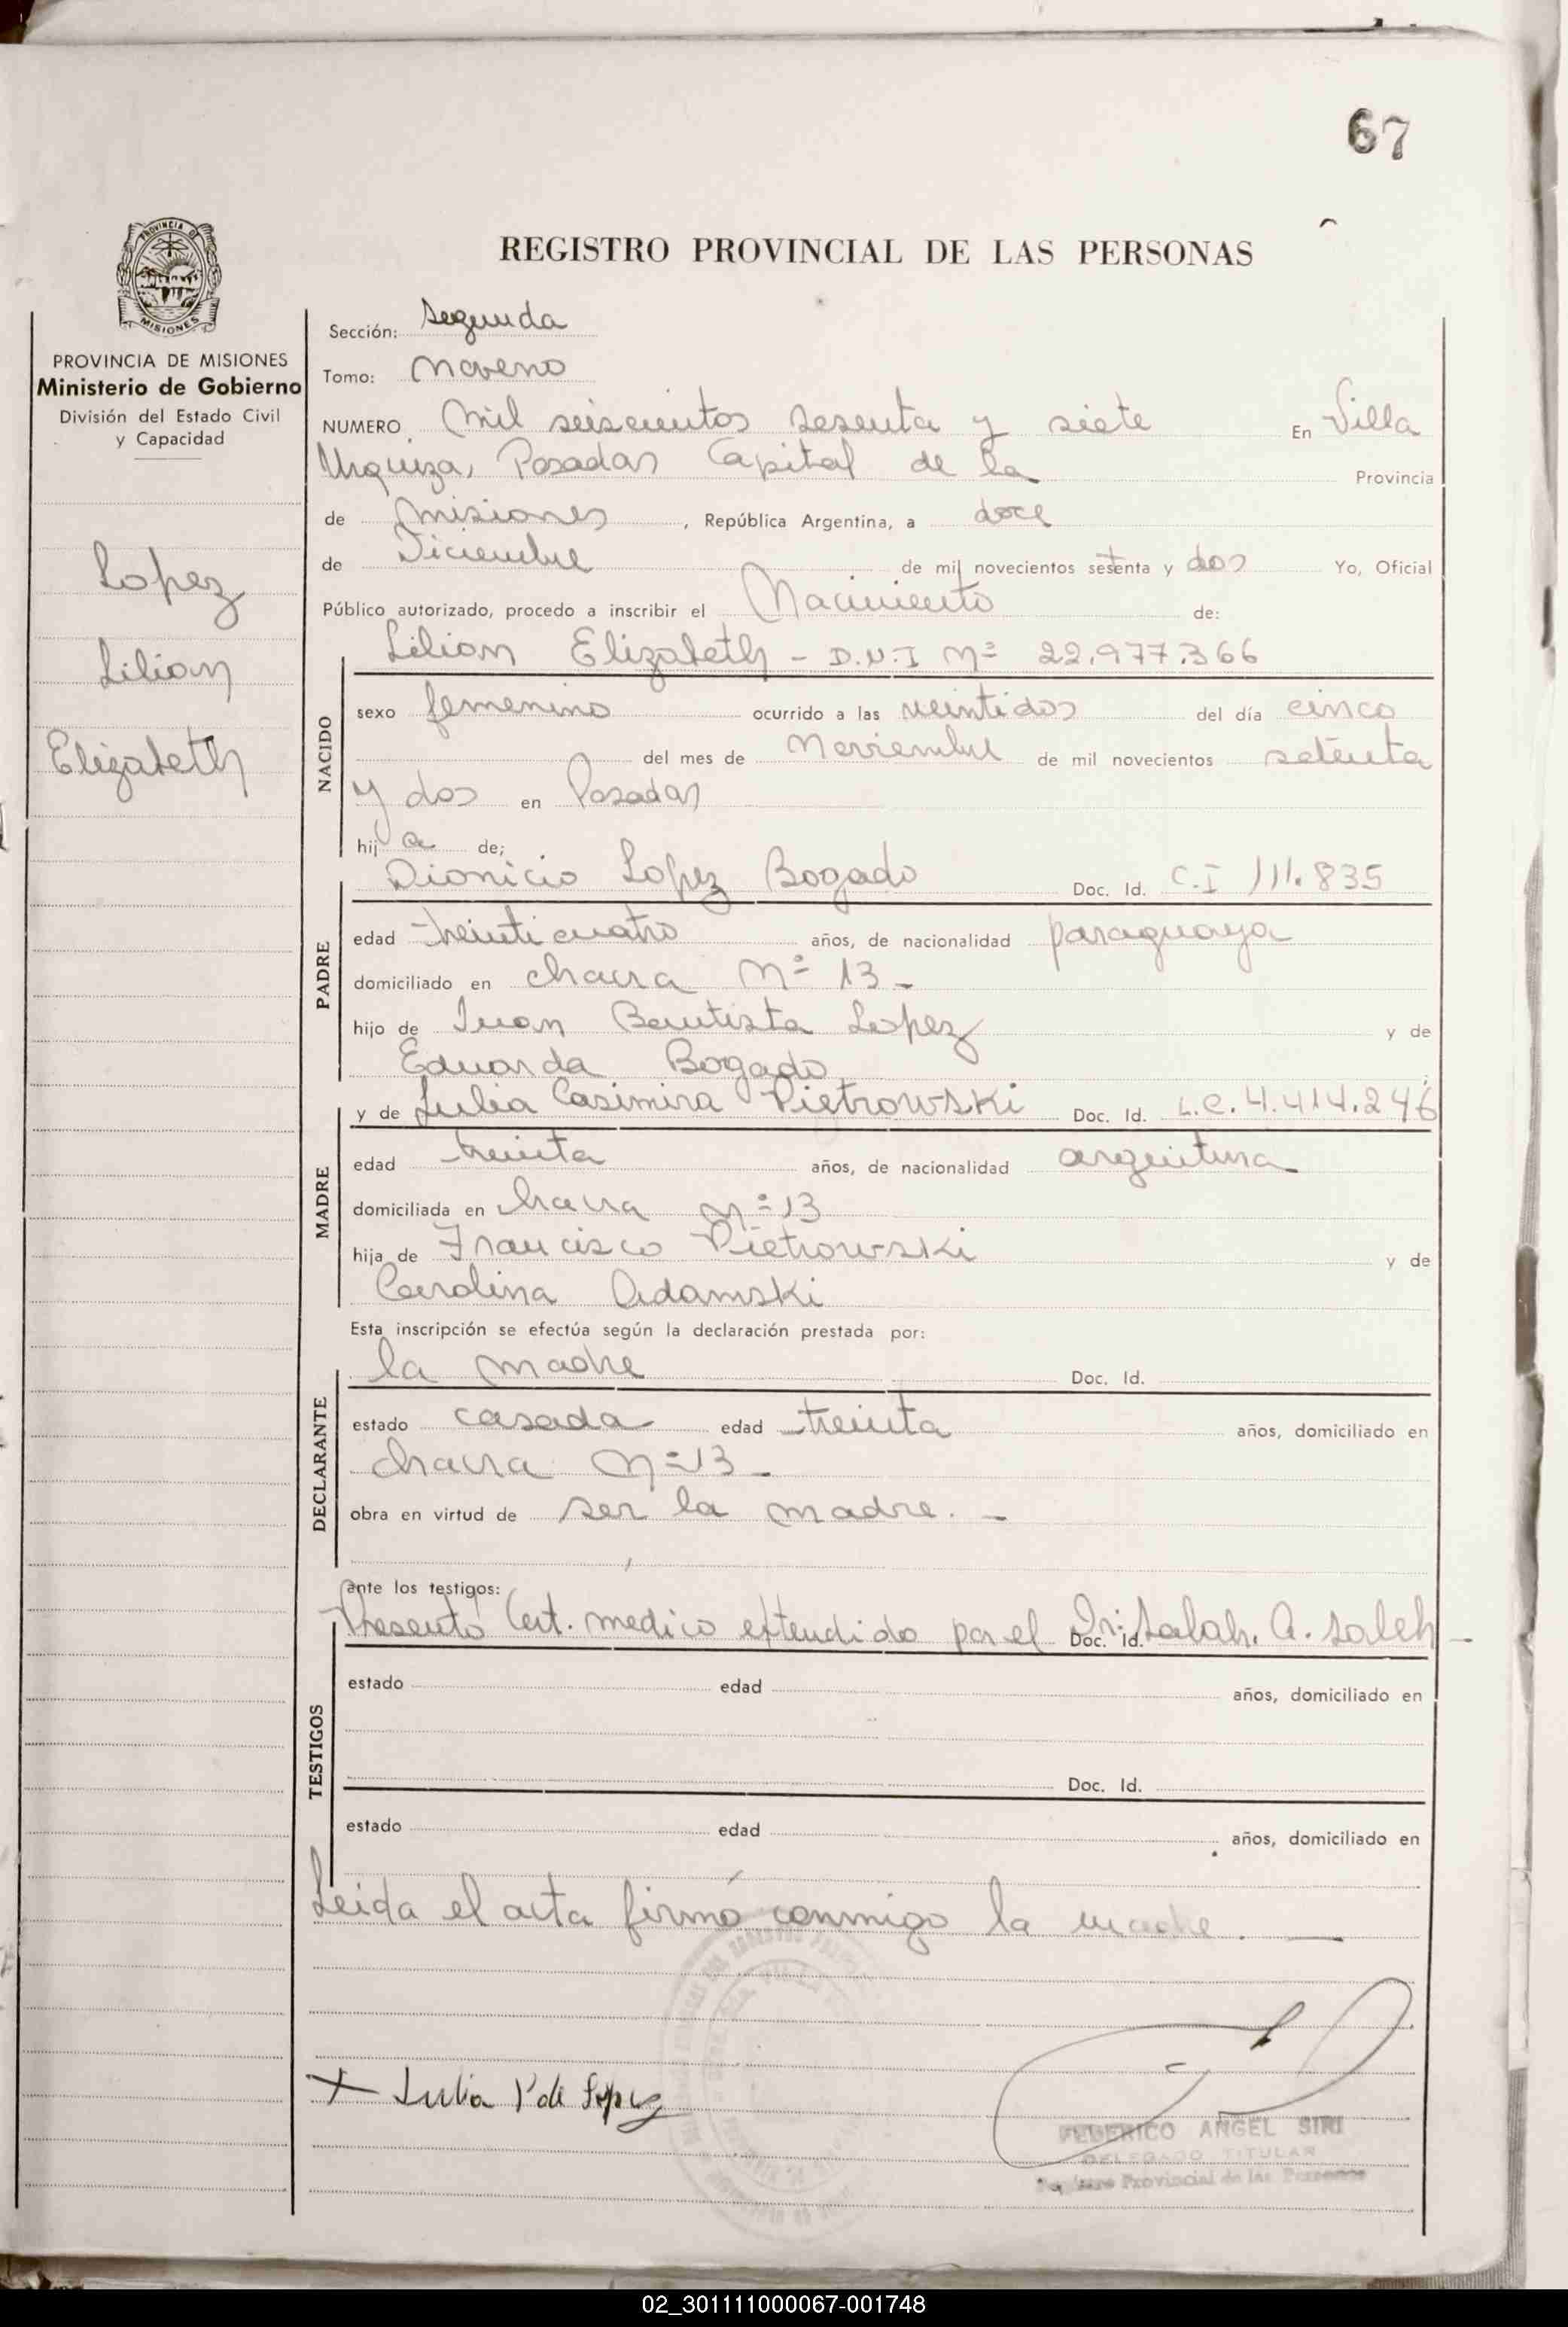 67
PROVINCIA DE
MISIONES
REGISTRO PROVINCIAL DE LAS PERSONAS
PROVINCIA DE MISIONES
Ministerio de Gobierno
División del Estado Civil
y Capacidad
Lopez
Lilian
Elizabeth
Sección: Segunda
Tomo: Noveno
NUMERO Mil seiscientos sesenta y siete En Villa
Urquiza, Posadas Capital de la Provincia
de Misiones, República Argentina, a doce
de Diciembre de mil novecientos setenta y dos Yo, Oficial
Público autorizado, procedo a inscribir el Nacimiento de:
Lilian Elizabeth - D.N.I Nº 22.977.366
NACIDO
sexo femenino ocurrido a las veintidos del día cinco
del mes de Noviembre de mil novecientos setenta
y dos en Posadas
hij a de;
Dionicio Lopez Bogado Doc. Id. C.I 111.835
PADRE
edad treinticuatro años, de nacionalidad paraguaya
domiciliado en chacra Nº 13-
hijo de Juan Bautista Lopez y de
Eduarda Bogado
y de Julia Casimira Pietrowski Doc. Id. L.C. 4.414.246
MADRE
edad treinta años, de nacionalidad argentina
domiciliada en chacra nº 13
hija de Francisco Pietrowski y de
Carolina Adamski
Esta inscripción se efectúa según la declaración prestada por:
la madre Doc. Id.
DECLARANTE
estado casada edad treinta años, domiciliado en
chacra Nº 13-
obra en virtud de ser la madre. -
ante los testigos:
Presento Cert. medico extendido por el Dr: Salah. A. Saleh - Doc. Id.
TESTIGOS
estado edad años, domiciliado en
Doc. Id.
estado edad años, domiciliado en
Leida el acta firmó conmigo la madre. —
+ Julia P de Lopez
FEDERICO ANGEL SIRI
DELEGADO TITULAR
Registro Provincial de las Personas
02_301111000067-001748